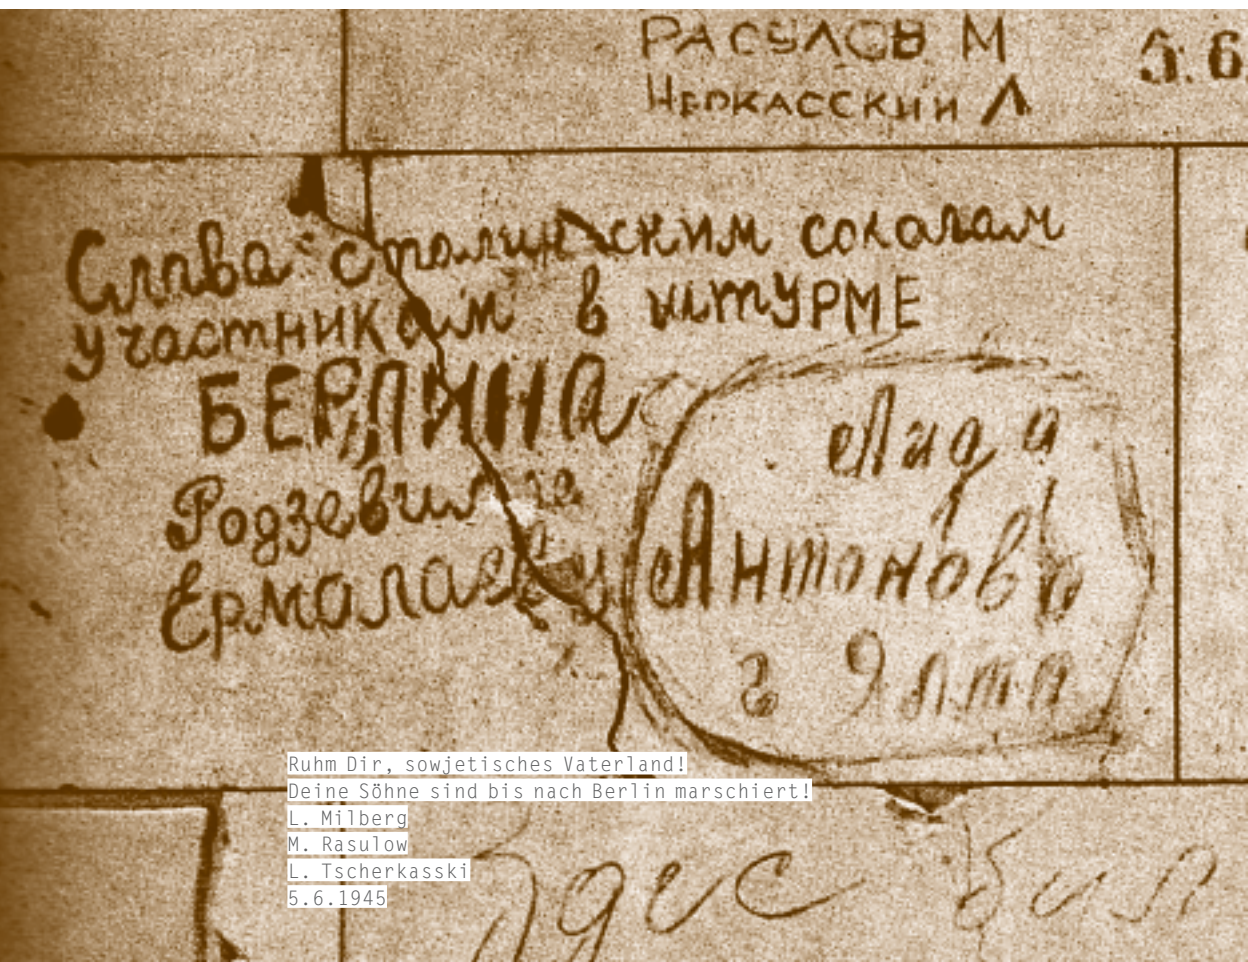 РАСУЛОВ М 5.6
ЧЕРКАССКИЙ Л
Слава сталинским соколам
участникам в штурме
БЕРЛИНА
Родзевилле
Ермолаеву
Лида
Антонов
г Ялта
Ruhm Dir, sowjetisches Vaterland!
Deine Söhne sind bis nach Berlin marschiert!
L. Milberg
M. Rasulow
L. Tscherkasski
5.6.1945
Здес бил